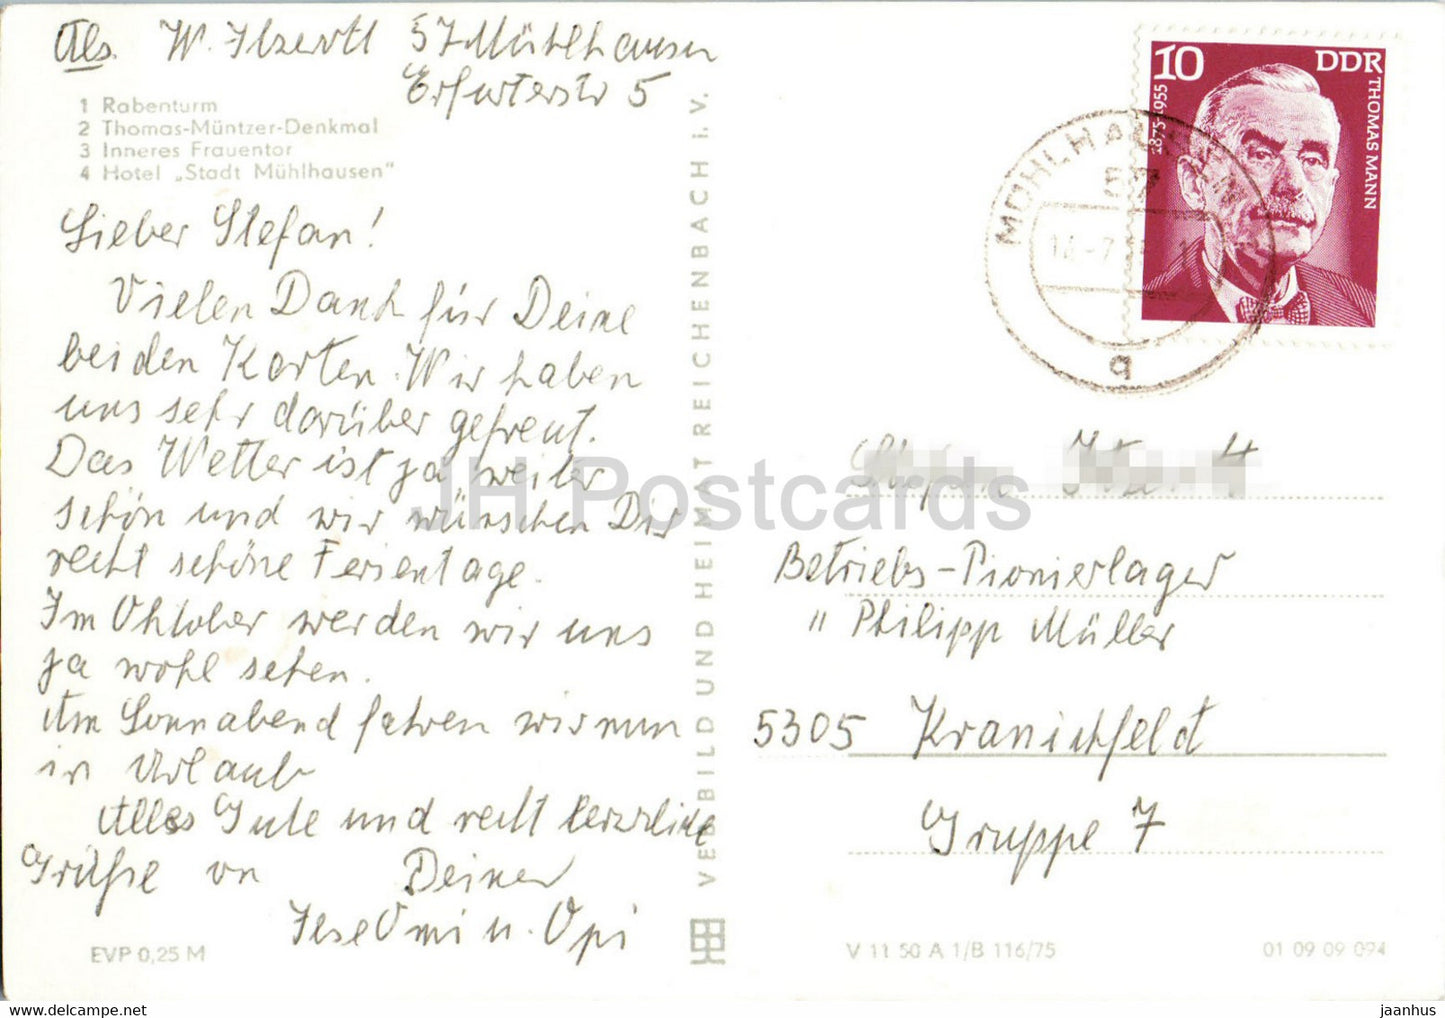 Abs. W. 57 Mühlhausen
Erfurterstr 5
1 Rabenturm
2 Thomas-Müntzer-Denkmal
3 Inneres Frauentor
4 Hotel „Stadt Mühlhausen"
Lieber Stefan!
Vielen Dank für Deine
beiden Karten. Wir haben
uns sehr darüber gefreut.
Das Wetter ist ja weiter
schön und wir wünschen Dir
recht schöne Ferientage.
Im Oktober werden wir uns
ja wohl sehen.
Am Sonnabend fahren wir nun
in Urlaub
Alles Gute und recht herzliche
Grüße von Deiner
Ilse Omi u. Opi
EVP 0,25 M
VEB BILD UND HEIMAT REICHENBACH I. V.
10 DDR
1875-1955
THOMAS MANN
MÜHLHAUSEN
57
a
Betriebs-Pionierlager
" Philipp Müller
5305 Kranichfeld
Gruppe 7
V 11 50 A 1/B 116/75
01 09 09 094
JH Postcards
delcampe.net
jaanhus